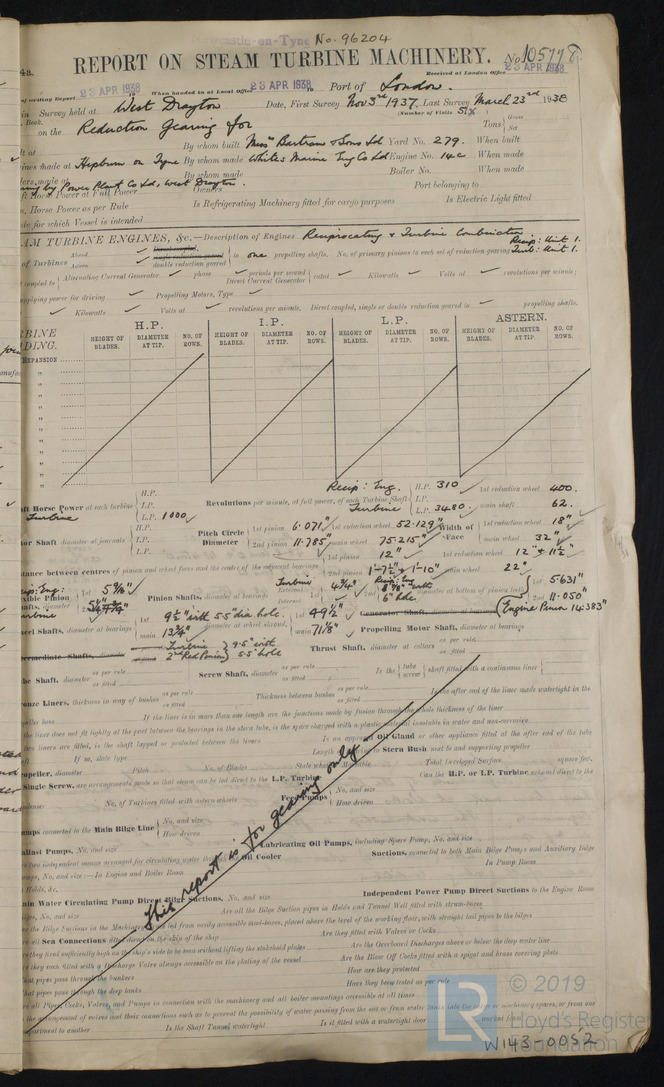 Newcastle-on-Tyne No. 96204
REPORT ON STEAM TURBINE MACHINERY. No. 105778
Received at London Office 23 APR 1938
23 APR 1938 When handed in at Local Office 23 APR 1938 Port of London.
Survey held at West Drayton Date, First Survey Nov 3rd 1937. Last Survey March 23rd 1938
(Number of Visits Six)
on the Reduction Gearing for Tons Gross
By whom built Messrs Bartram & Sons Ld Yard No. 279. When built
made at Hepburn on Tyne By whom made White's Marine Eng Co Ld Engine No. 14c When made
made at By whom made Boiler No. When made
by Power Plant Co Ld, West Drayton. Owners Port belonging to
Horse Power at Full Power
Horse Power as per Rule Is Refrigerating Machinery fitted for cargo purposes Is Electric Light fitted
for which Vessel is intended
AM TURBINE ENGINES, &c.—Description of Engines Reciprocating & Turbine Combination
Recip: Unit 1.
of Turbines Ahead Astern double reduction geared to one propelling shafts. No. of primary pinions to each set of reduction gearing Turb: Unit 1.
coupled to Alternating Current Generator phase periods per second Direct Current Generator rated Kilowatts Volts at revolutions per minute;
supplying power for driving Propelling Motors, Type
Kilowatts Volts at revolutions per minute. Direct coupled, single or double reduction geared to propelling shafts.
H.P. I.P. L.P. ASTERN.
HEIGHT OF BLADES. DIAMETER AT TIP. NO. OF ROWS. HEIGHT OF BLADES. DIAMETER AT TIP. NO. OF ROWS. HEIGHT OF BLADES. DIAMETER AT TIP. NO. OF ROWS. HEIGHT OF BLADES. DIAMETER AT TIP. NO. OF ROWS.
EXPANSION
Recip: Eng. H.P. 310 1st reduction wheel 400.
Horse Power at each turbine H.P. I.P. L.P. 1000 Revolutions per minute, at full power, of each Turbine Shaft I.P. Turbine L.P. 3480. main shaft 62.
Turbine
Shaft diameter at journals H.P. I.P. L.P. Pitch Circle Diameter 1st pinion 6.071" 1st reduction wheel 52.129" Width of Face 1st reduction wheel 18"
2nd pinion 11.785" main wheel 75.215" main wheel 32"
between centres of pinion and wheel faces and the centre of the adjacent bearings 1st pinion 12" 1st reduction wheel 12" & 11½"
1'-7½" & 1'-10" main wheel 22"
Turbine 4¾" Recip: Eng 8⅞" with 6" hole. diameter at bottom of pinion teeth 1st 5.631" 2nd 11.050"
Pinion Shafts, diameter at bearings External Internal
(Engine Pinion 14.383")
Wheel Shafts, diameter at bearings 1st 9½" with 5.5" dia hole. main 13¾" diameter at wheel shroud, 1st 49½" main 71⅛" Generator Shaft, Propelling Motor Shaft, diameter at bearings
Intermediate Shafts, diameter Turbine 2nd Red Pinion 9.5" with 5.5" hole Thrust Shaft, diameter at collars as per rule as fitted
Shaft, diameter as per rule as fitted Screw Shaft, diameter as per rule as fitted Is the tube screw shaft fitted with a continuous liner
Liners, thickness in way of bushes as per rule as fitted Thickness between bushes as per rule as fitted Is the after end of the liner made watertight in the
If the liner is in more than one length are the junctions made by fusion through the whole thickness of the liner
the liner does not fit tightly at the part between the bearings in the stern tube, is the space charged with a plastic material insoluble in water and non-corrosive
two liners are fitted, is the shaft lapped or protected between the liners Is an approved Oil Gland or other appliance fitted at the after end of the tube
If so, state type Length of Stern Bush next to and supporting propeller
Propeller, diameter Pitch No. of Blades State whether Moveable Total Developed Surface square feet.
Single Screw, are arrangements made so that steam can be led direct to the L.P. Turbine Can the H.P. or I.P. Turbine exhaust direct to the
No. of Turbines fitted with astern wheels Feed Pumps No. and size How driven
connected to the Main Bilge Line No. and size How driven
Ballast Pumps, No. and size Lubricating Oil Pumps, including Spare Pump, No. and size
two independent means arranged for circulating water through the Oil Cooler Suctions, connected to both Main Bilge Pumps and Auxiliary Bilge
No. and size:—In Engine and Boiler Room In Pump Room
Holds, &c.
Main Water Circulating Pump Direct Bilge Suctions, No. and size Independent Power Pump Direct Suctions to the Engine Room
No. and size Are all the Bilge Suction pipes in Holds and Tunnel Well fitted with strum-boxes
the Bilge Suctions in the Machinery Space led from easily accessible mud-boxes, placed above the level of the working floor, with straight tail pipes to the bilges
all Sea Connections fitted direct on the skin of the ship Are they fitted with Valves or Cocks
they fixed sufficiently high on the ship's side to be seen without lifting the stokehold plates Are the Overboard Discharges above or below the deep water line
they each fitted with a Discharge Valve always accessible on the plating of the vessel Are the Blow Off Cocks fitted with a spigot and brass covering plate
pipes pass through the bunkers How are they protected
pipes pass through the deep tanks Have they been tested as per rule
all Pipes, Cocks, Valves, and Pumps in connection with the machinery and all boiler mountings accessible at all times
Is the Shaft Tunnel watertight Is it fitted with a watertight door
This report is for gearing only
LR © 2019
Lloyd's Register
Foundation
W143-0052